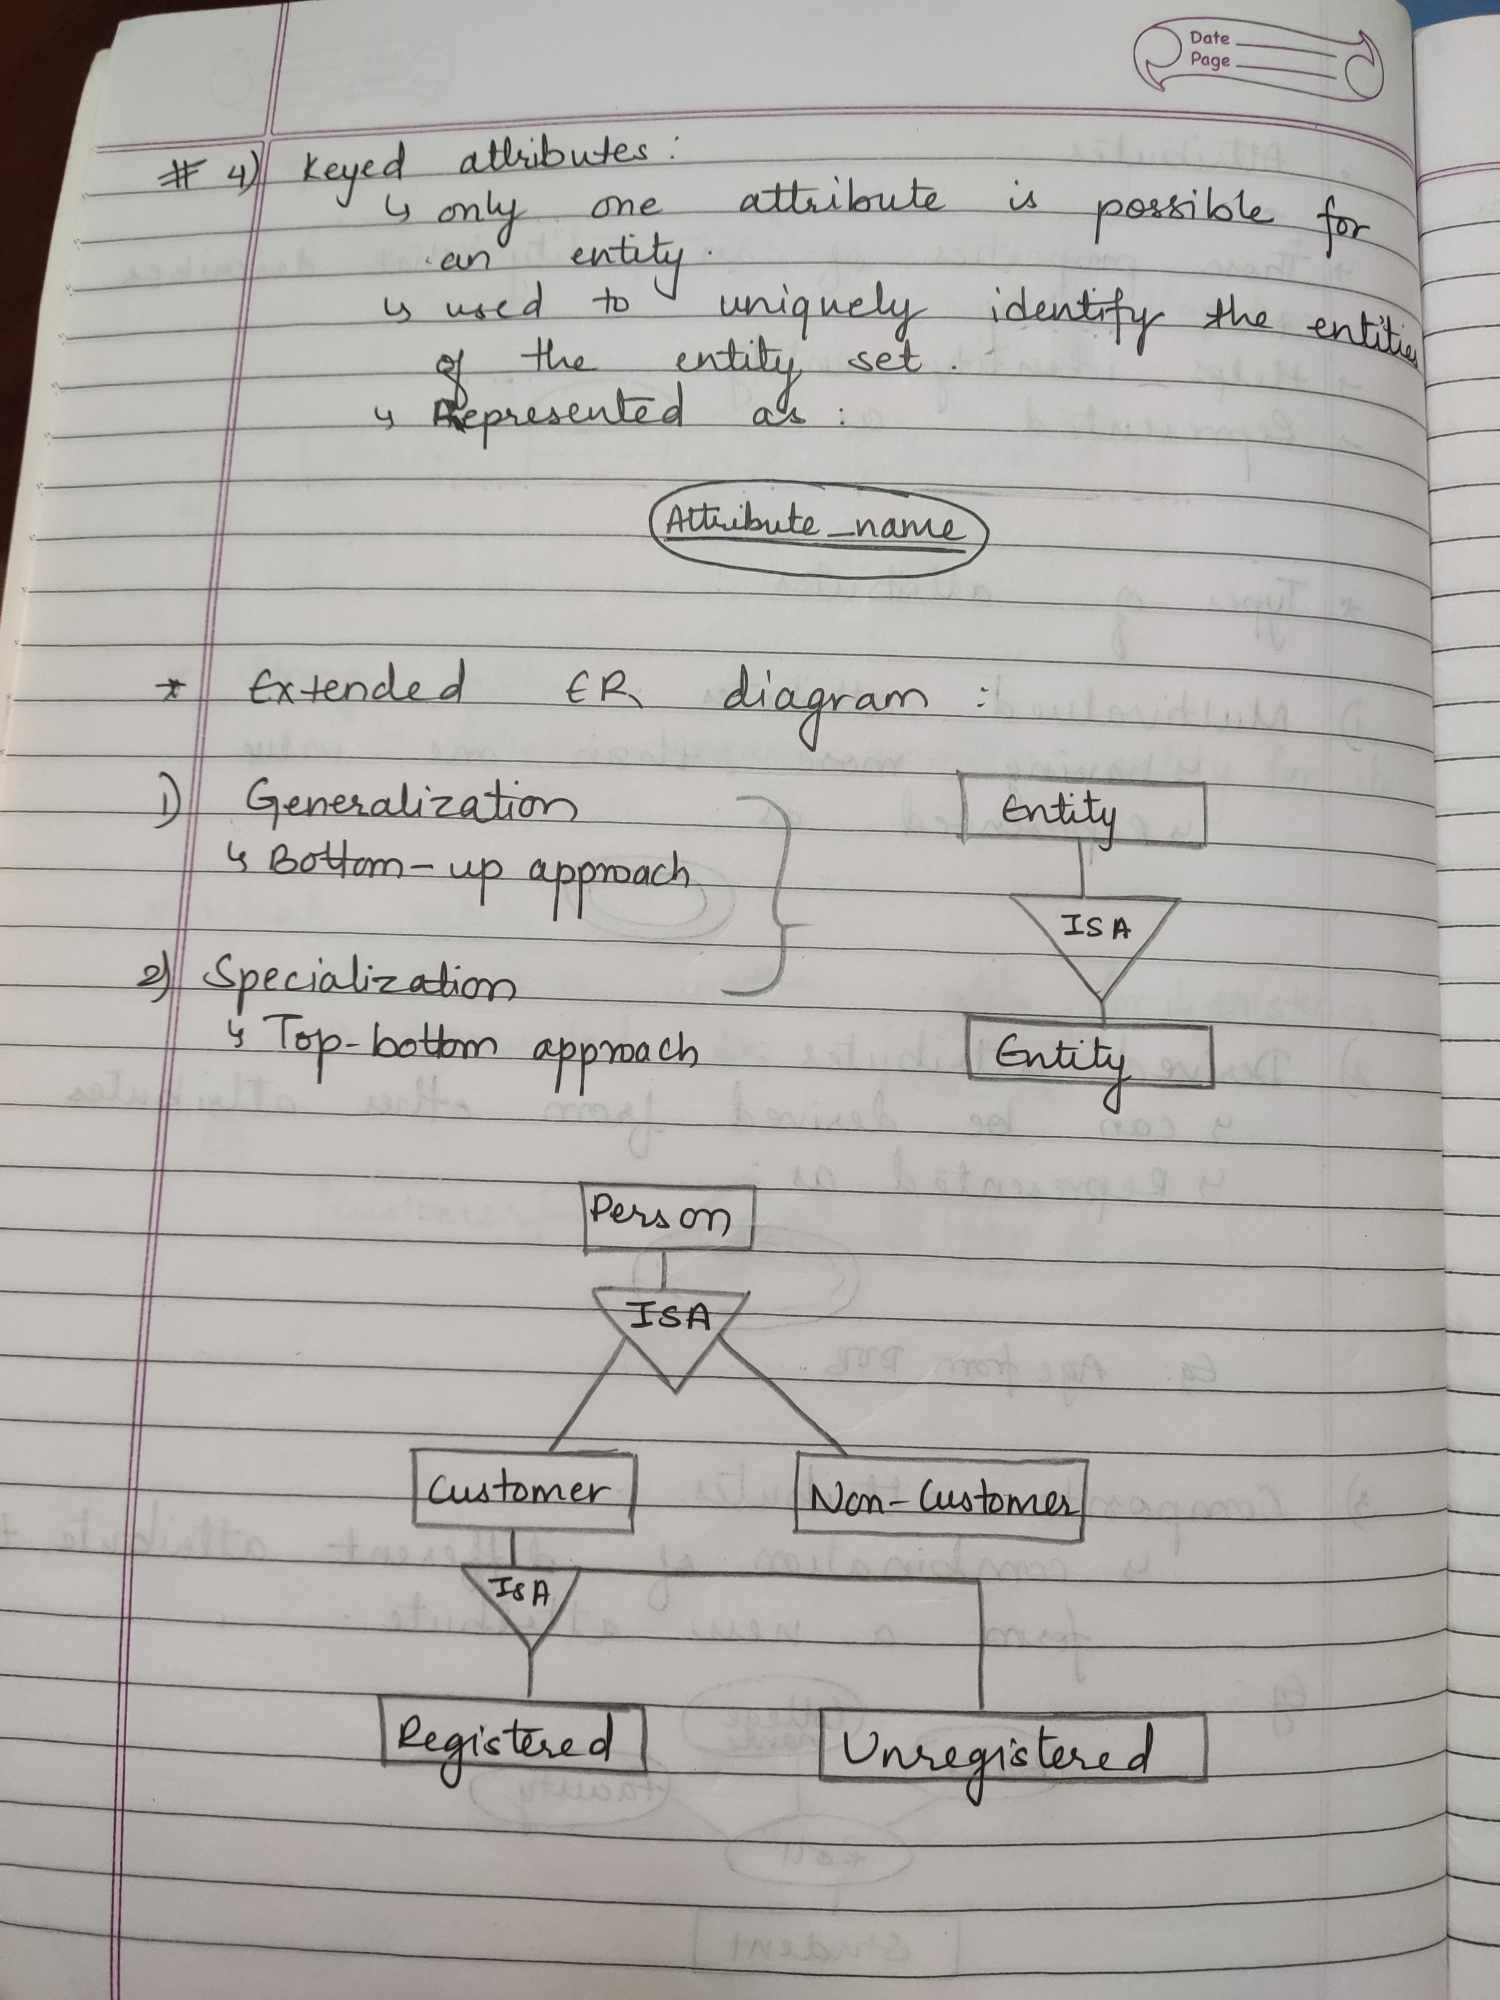 Date
Page
# 4) Keyed attributes:
↳ only one attribute is possible for
an entity.
↳ used to uniquely identify the entities
of the entity set.
↳ Represented as:
Attribute_name
* Extended ER diagram:
1) Generalization
↳ Bottom-up approach
2) Specialization
↳ Top-bottom approach
Entity
ISA
Entity
Person
ISA
Customer
Non-Customer
ISA
Registered
Unregistered